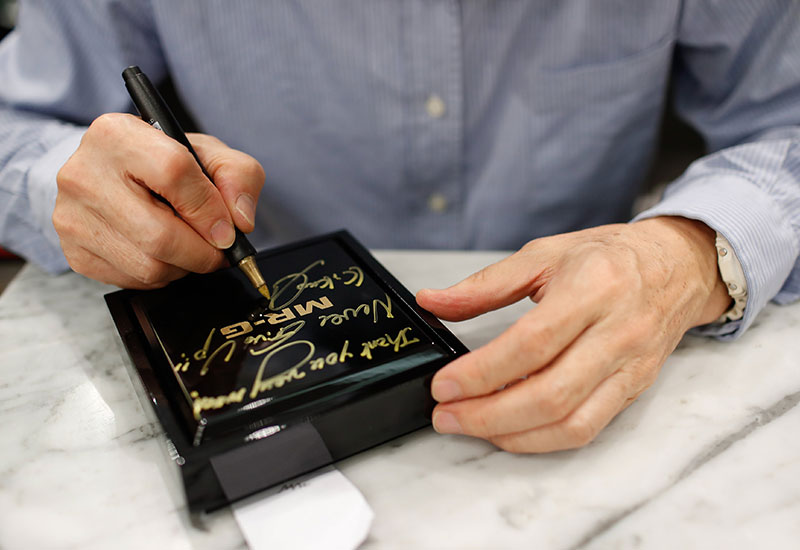 Thank you very much!
Never Give Up!!
MR-G